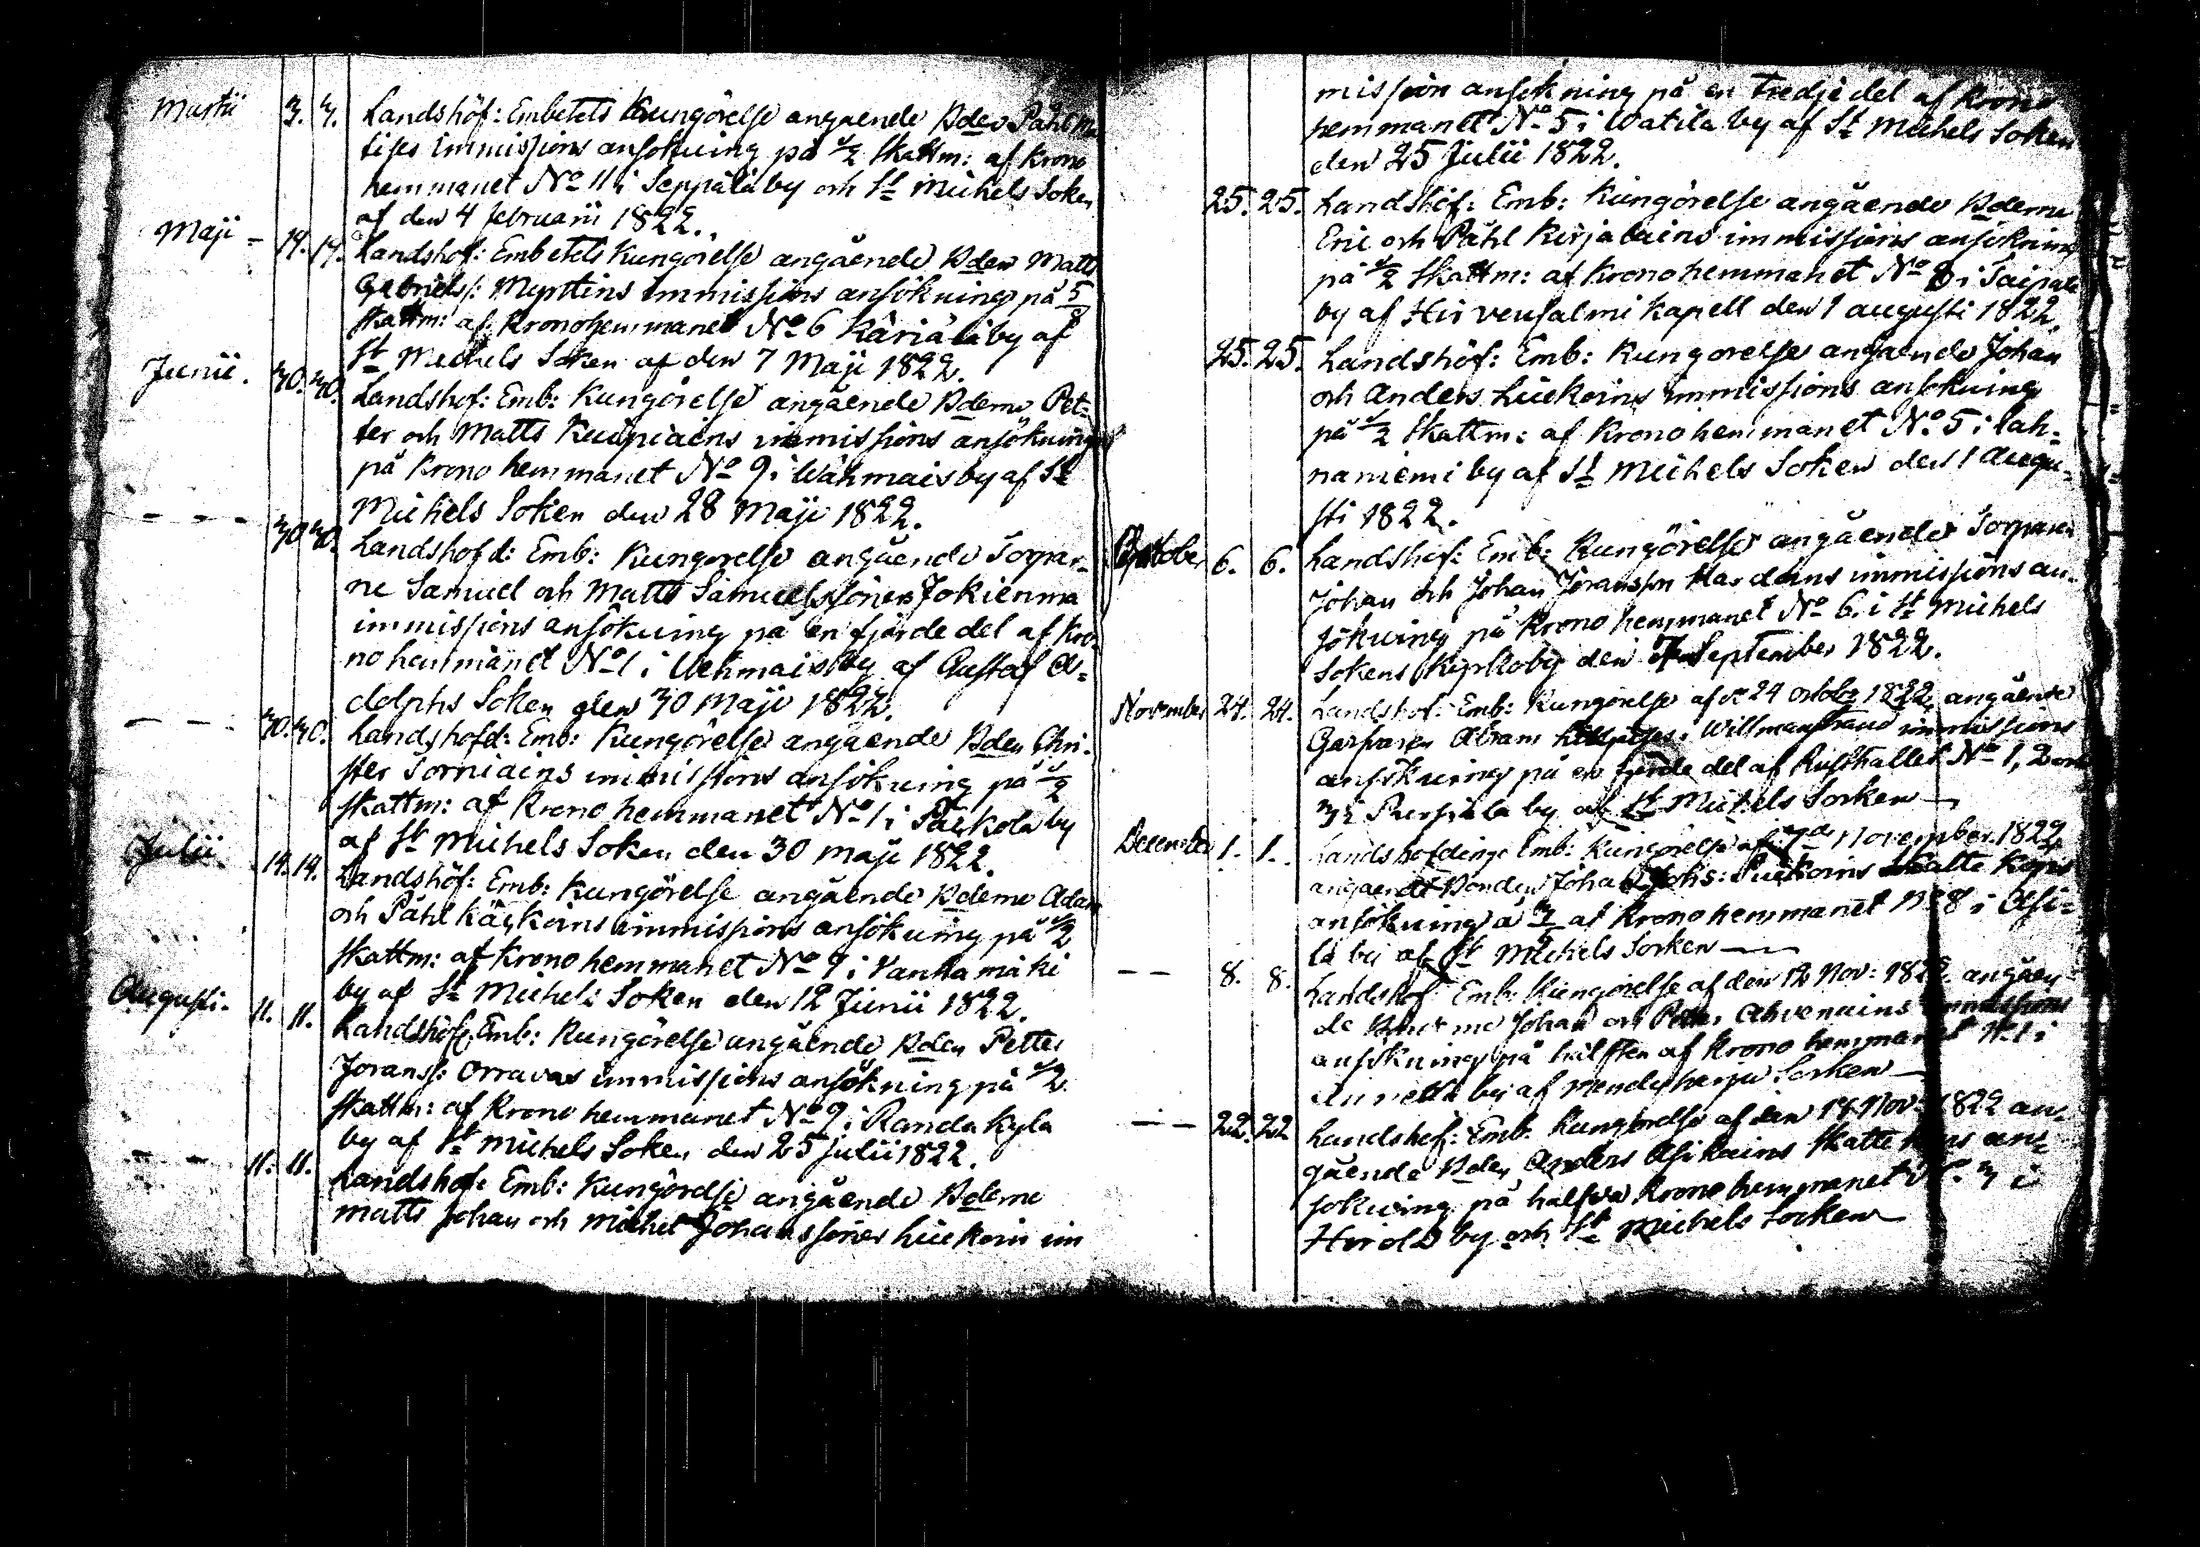 Martii 3. 3. Landshöf: Embetets Kungörelse angaende Bden Påhl Ma
tises Immissions ansökning på 1/2 skattm: af Krono
hemmanet No 11 i Seppälä by och St Michels Soken
af den 4 februarii 1822.
Maji - 19. 19. Landshöf: Embetets Kungörelse angående Bden Matts
Gabrielss: Myntins immissions ansökning på 5/8
skattm: af Kronohemmanet No 6 Käriälä by af
St Michels Soken af den 7 Maji 1822.
Junii. 30. 30. Landshöf: Emb: Kungörelse angående Bderne Pet-
ter och Matts Kuupiains immissions ansökning
på Krono hemmanet No 9 i Wähmais by af St
Michels Soken den 28 Maji 1822.
- - - - 30 30. Landshöfd: Emb: Kungörelse angående Torpar-
ne Samuel och Matts Samuelssöner Jokienma
immissions ansökning på en fjärde del af Kro-
no hemmanet No 1 i Uehmais by af Gustaf A-
dolphs Soken den 30 Maji 1822.
- - - 30. 30. Landshöfd: Emb: Kungörelse angående Bden Chri-
ster Torniains immissions ansökning på 1/2
skattm: af Krono hemmanet No 1 i Parkola by
af St Michels Soken den 30 Maji 1822.
Julii. 14. 14. Landshöf: Emb: Kungörelse angående Bderne Adam
och Påhl Käykoins immissions ansökning på 1/2
skattm: af Krono hemmanet No 9 i Vanhamäki
by af St Michels Soken den 12 Junii 1822.
Augusti. 11. 11. Landshöf: Emb: Kungörelse angående Bden Petter
Joranss: Orravas immissions ansökning på 1/2
skattm: af Krono hemmanet No 9 i Randakylä
by af St Michels Soken den 25 Julii 1822.
- - - 11. 11. Landshöf: Emb: Kungörelse angående Bderne
Matts Johan och Michel Johanssöner Liiekoin im
mission ansökning på en tredjedel af Krono
hemmanet No 5 i Watila by af St Michels Soken
den 25 Julii 1822.
25. 25. Landshöf: Emb: Kungörelse angående Bderne
Eric och Påhl Kirjalains immissions ansökning
på 1/2 skattm: af Krono hemmanet No 8 i Saipale
by af Hirvensalmi Kapell den 1 augusti 1822.
25. 25. Landshöf: Emb: Kungörelse angående Johan
och Anders Liiekoins immissions ansökning
på 1/2 skattm: af Krono hemmanet No 5 i Lah-
naniemi by af St Michels Soken den 1 Augu-
sti 1822.
October 6. 6. Landshöf: Emb: Kungörelse angående Torparen
Johan och Johan Joransson Hardains immissions an-
sökning på Krono hemmanet No 6. i St Michels
Sokens Kyrkoby den 7 September 1822.
November 24. 24. Landshöf: Emb: Kungörelse af d 24 october 1822, angående
Garfvaren Abram i Willmanstrand immissions
ansökning på en fjerde del af Rusthallet No 1, 2 och
3 i Pursiala by af St Michels Sorken —
December 1. 1. Landshöfdinge Emb: Kungörelse af November 1822,
angaende Bonden Johan Johs: Puukoins Skatte Köps
ansökning a af Krono hemmanet No 8 i Asi-
la by af St Michels Sorken —
- - 8. 8. Landshöf: Emb: Kungörelse af den 12 Nov: 1822 angåen-
de Bderne Johan och Petter Ahvenains immissions
ansökning på hälften af Krono hemmanet No 1 i
by af Mendyharju Sorken —
- - - 22. 22 Landshöf: Emb: Kungörelse af den 14 Nov: 1822 an-
gående Bden Anders Asikains Skatte Köps an-
sökning på halfva Krono hemmanet No 3 i
Hirola by och St Michels Sorken